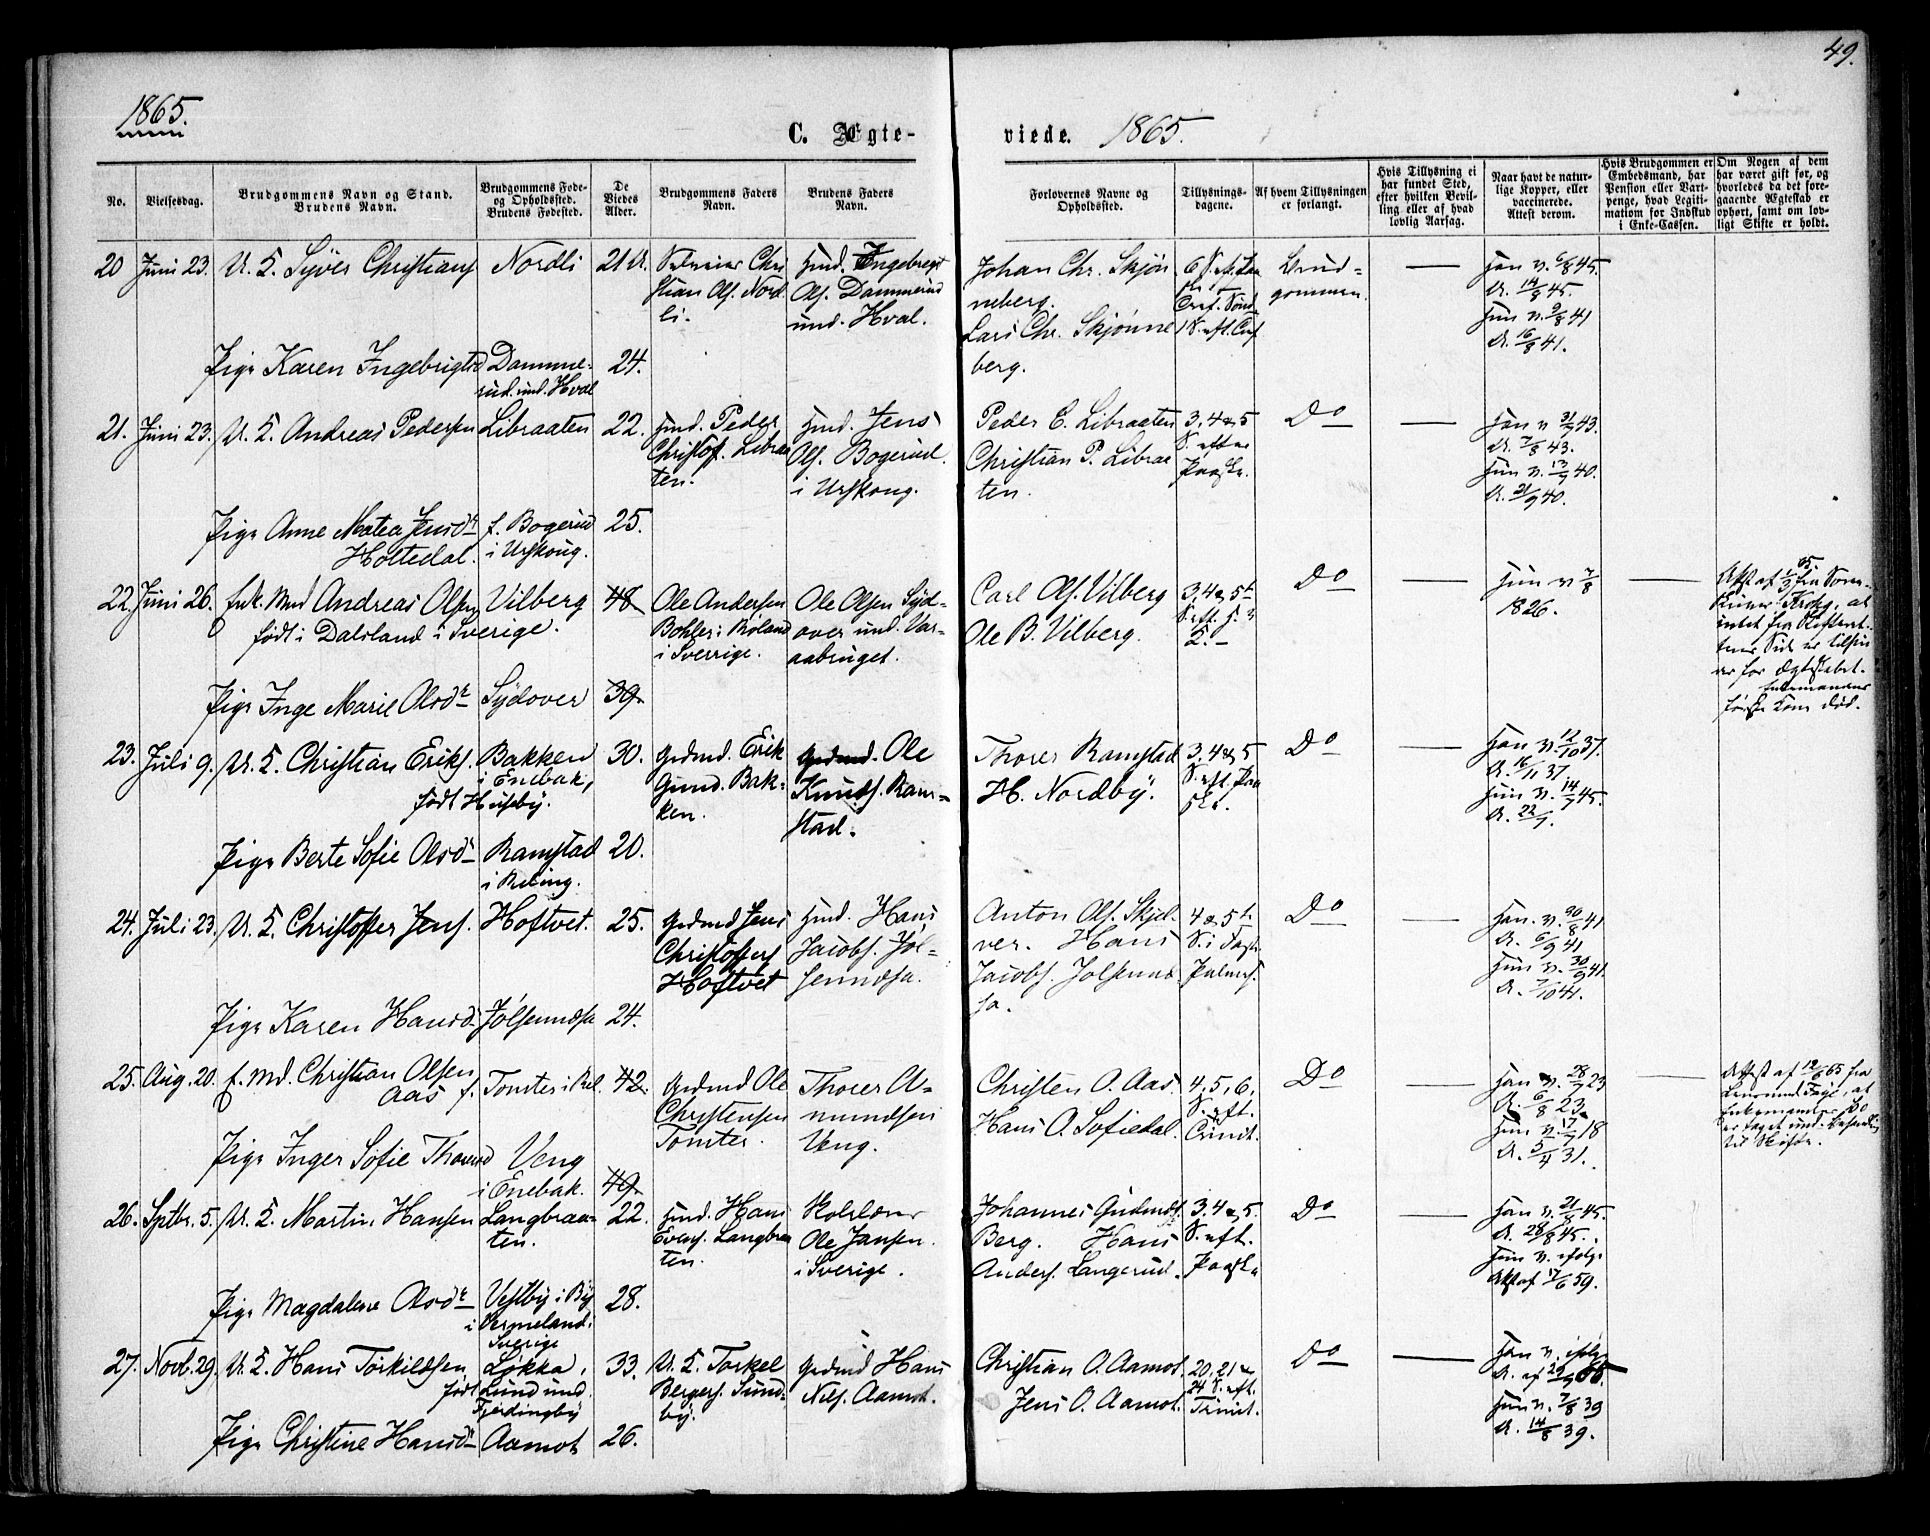 49.
1865.
C. Ægte-
viede. 1865.
No.
Vielsesdag.
Brudgommens Navn og Stand.
Brudens Navn.
Brudgommens Føde-
og Opholdssted.
Brudens Fødested.
De
Viedes
Alder.
Brudgommens Faders
Navn.
Brudens Faders
Navn.
Forlovernes Navne og
Opholdssted.
Tillysnings-
dagene.
Af hvem Tillysningen
er forlangt.
Hvis Tillysning ei
har fundet Sted,
efter hvilken Bevil-
ling eller af hvad
lovlig Aarsag.
Naar havt de natur-
lige Kopper, eller
vaccinerede.
Attest derom.
Hvis Brudgommen er
Embedsmand, har
Pension eller Vart-
penge, hvad Legiti-
mation for Indskud
i Enke-Cassen.
Om Nogen af dem
har været gift før, og
hvorledes da det fore-
gaaende Ægteskab er
ophørt, samt om lov-
ligt Skifte er holdt.
20 Juni 23. U. K. Syver Christians Nordli 21
Christian Ols. Nord-
li.
Hmd. Ingebregt
Ols. Dammerud
und. Hval.
Johan Chr. Skjøn
neberg.
Lars Chr. Skjønne
berg.
Brud=
gommen.
— 45.
14/8 45.
9/8 41
16/8 41.
Pige Karen Ingebrigtsd Damme-
rud und. Hval 24.
21. Juni 23. U. K. Andreas Pedersen Libraaten 22.
Hmd. Peder
Christof. Libraa
ten.
Hmd. Jens
Ols. Bogerud.
i Urskoug.
Peder C. Libraaten
Christian P. Libraa
ten.
3, 4 & 5
S. efter
Paaske.
Do
— 43.
7/8 43.
40.
21/9 40.
Pige Anne Matea Jensdr
Holtedal.
f. Bogerud
i Urskoug. 25.
22. Juni 26. Enk. Md Andreas Olsen Vilberg 48
født i Dalsland i Sverige.
Ole Andersen
Bohler i Roland
i Sverrige.
Ole Olsen Syd-
over und. Var-
aabruget.
Carl Ols. Vilberg
Ole B. Vilberg.
3, 4 & 5t
Do
— hun v 7/8
1826. —
Pige Inge Marie Olsdr Sydover 39
første Kone død.
23. Juli 9. U. K. Christian Eriks. Bakken
i Enebak,
født Huseby. 30.
Grdmd. Erik
Gund. Bak-
ken.
Grdmd. Ole
Knuds. Ram-
stad.
Thorer Ramstad
H. Nordby.
3, 4 & 5
S. eft. Paa
ske.
Do
— han v. 12/10 37.
16/11 37.
hun v. 14/7 45.
22/7.
Pige Berte Sofie Olsd Ramstad
i Reling. 20.
24. Juli 23. U. K. Christoffer Jens. Hoftvet. 25.
Grdmd Jens
Christoffers
Hoftvet
Hmd. Hans
Jacobs. Jøl-
sennæsa.
Anton Ols. Skjel-
ver. Hans
Jacobs. Jølsennæ
sa.
4 & 5t.
S. i Faste
Palmes.
Do
— han v. 30/8 41
6/9 41
hun v. 30/9 41.
7/10 41.
Pige Karen Hansd Jølsennæsa 24.
25. Aug. 20. E. Md. Christian Olsen
Aas f. Tomter i Rel. 42
Grdmd Ole
Christensen
Tomter.
Thorer A-
mundsen
Veng.
Christen O. Aas
Hans O. Sofiedal.
4, 5, 6,
S. eft.
Trinit.
Do
— han v. 28/7 23
6/8 23
hun v. 17/7 18
5/4 31. —
Attest af 12/8 65 fra
til Skifte.
Pige Inger Sofie Thorersd Veng
i Enebak. 49
26. Sptbr. 5. U. K. Martin Hansen Langbraa-
ten. 22.
Hmd. Hans
Evens. Langbraa
ten.
Ole Jansen
i Sverige.
Johannes Gudmds.
Berg. Hans
Anders. Langerud.
3, 4 & 5.
S. eft.
Paaske
Do
— han v. 21/8 45.
28/8 45.
hun v. ifølge
59.
Pige Magdalene Olsdr Vestby i By
i Vermeland,
Sverige 28.
27. Novb. 29. U. K. Hans Torkildsen Løkka,
født Lund und
Fjerdingby 33.
U. K. Torkel
Bergers. Sund-
by.
Grdmd Hans
Nils. Aamot.
Christian O. Aamot.
Jens O. Aamot.
20, 21 &
24 S. eft.
Trinit.
Do
— han v. ifølge
A. af 65.
hun v. 7/8 39
14/8 39.
Pige Christine Hansdr Aamot 26.